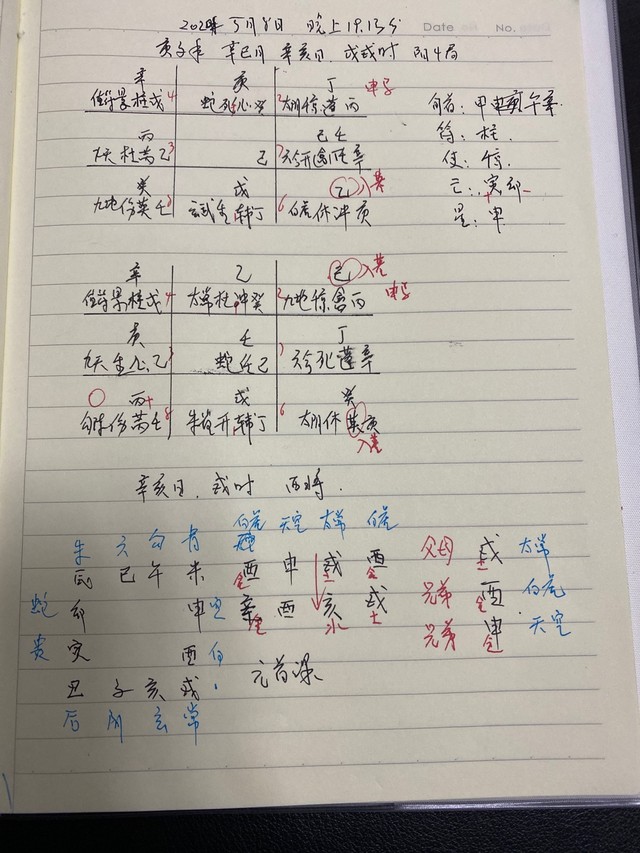 2020年5月8日 晚上19.13分
Date No.
庚子年 辛巳月 辛亥日 戊戌时 阴4局
辛 庚 丁 申子
符 景 柱 戊 4 蛇 死 心 癸 2 惊 丙
丙 己 壬
九天 杜 芮 乙 3 己 7 六合 开 辛
癸 戊 乙 入墓
九地 伤 英 壬 8 玄武 生 辅 丁 6 白虎 休 冲 庚
旬首:甲申庚 午未
符:柱
使:惊
亡:寅卯
星:申
辛 乙 己 入墓
景 柱 戊 4 太常 杜 冲 癸 2 九地 惊 丙 申子
庚 壬 丁
九天 生 心 乙 3 蛇 己 7 六合 死 辛
丙 戊 癸
伤 芮 壬 8 朱雀 开 辅 丁 6 休 英 庚
入墓
辛亥日 戌时 酉将
白虎 天空 太常 白虎
朱 六 勾 青
辰 巳 午 未 酉 申 戌 酉 父母 戌 太常
金 土 金 土
蛇 卯 申 空 辛 酉 亥 戌 兄弟 酉 白虎
金 水 土 金
贵 寅 酉 白 元首课 兄弟 申 天空
金
丑 子 亥 戌
后 阴 玄 常